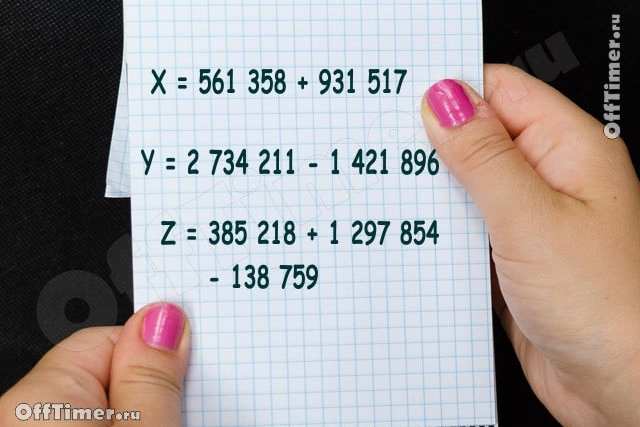 X = 561 358 + 931 517
Y = 2 734 211 - 1 421 896
Z = 385 218 + 1 297 854
- 138 759
OffTimer.ru
OffTimer.ru
OffTimer.ru